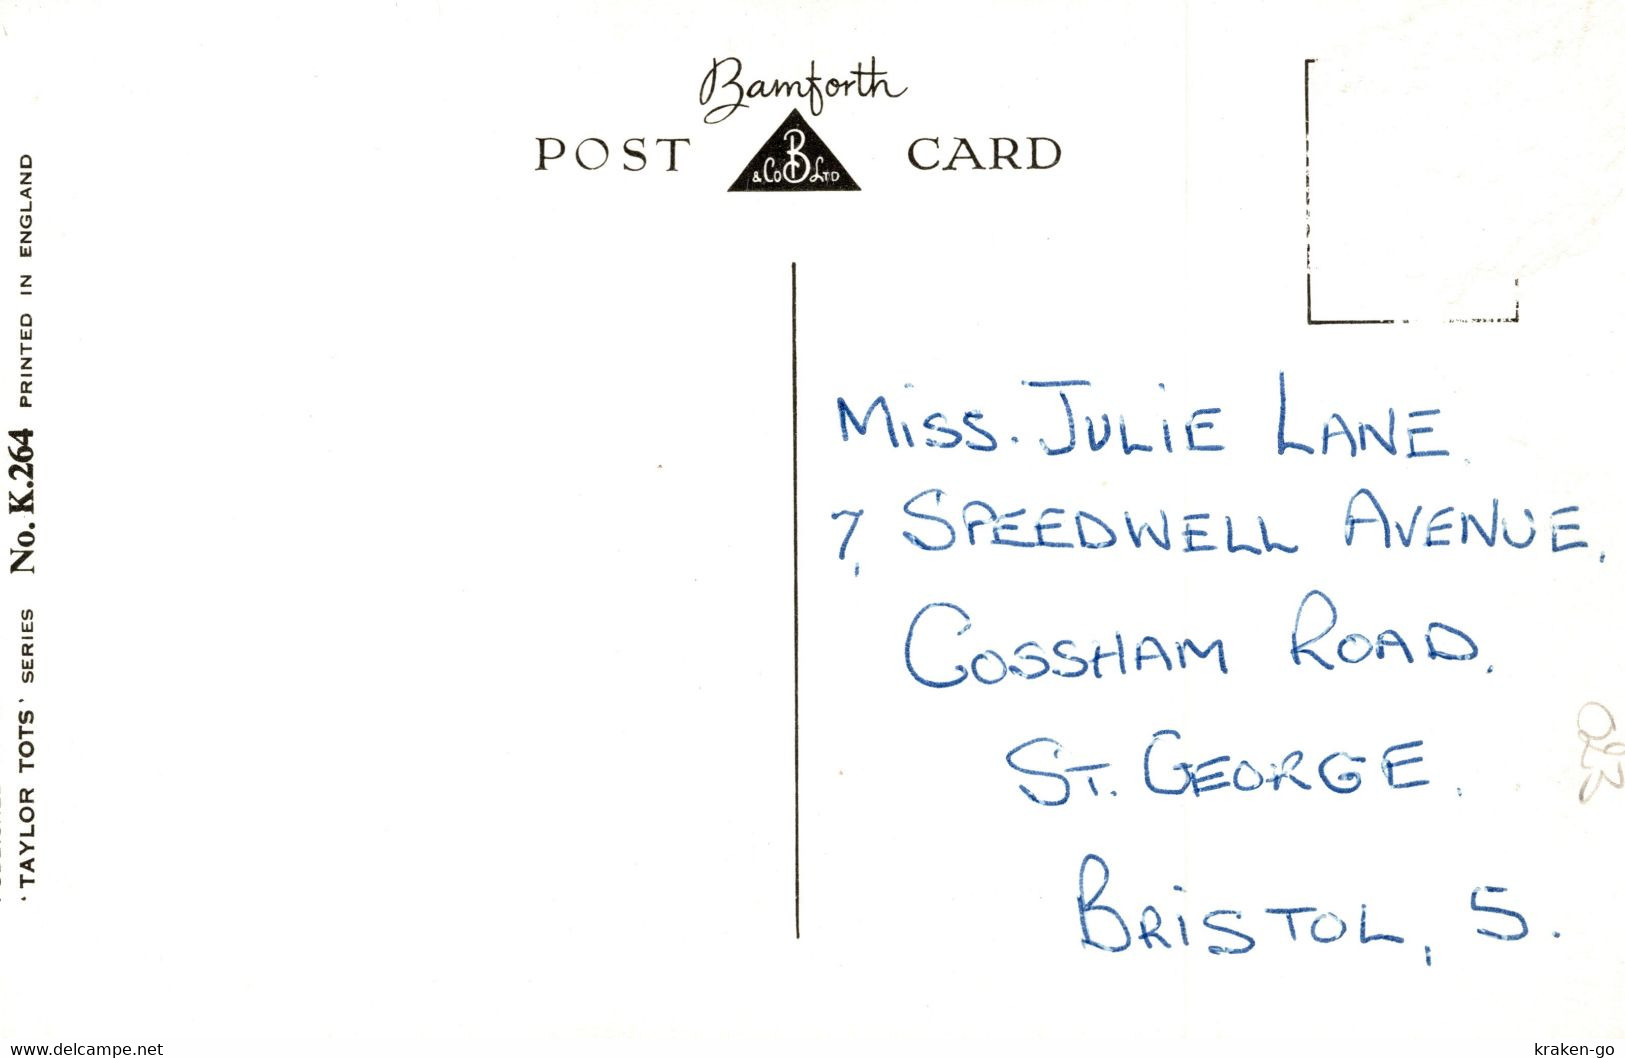 Bamforth
POST CARD
B
& Co LTD
'TAYLOR TOTS' SERIES No. K.264 PRINTED IN ENGLAND
MISS. JULIE LANE.
7, SPEEDWELL AVENUE,
COSSHAM ROAD.
ST. GEORGE.
BRISTOL, 5.
www.delcampe.net
kraken-go